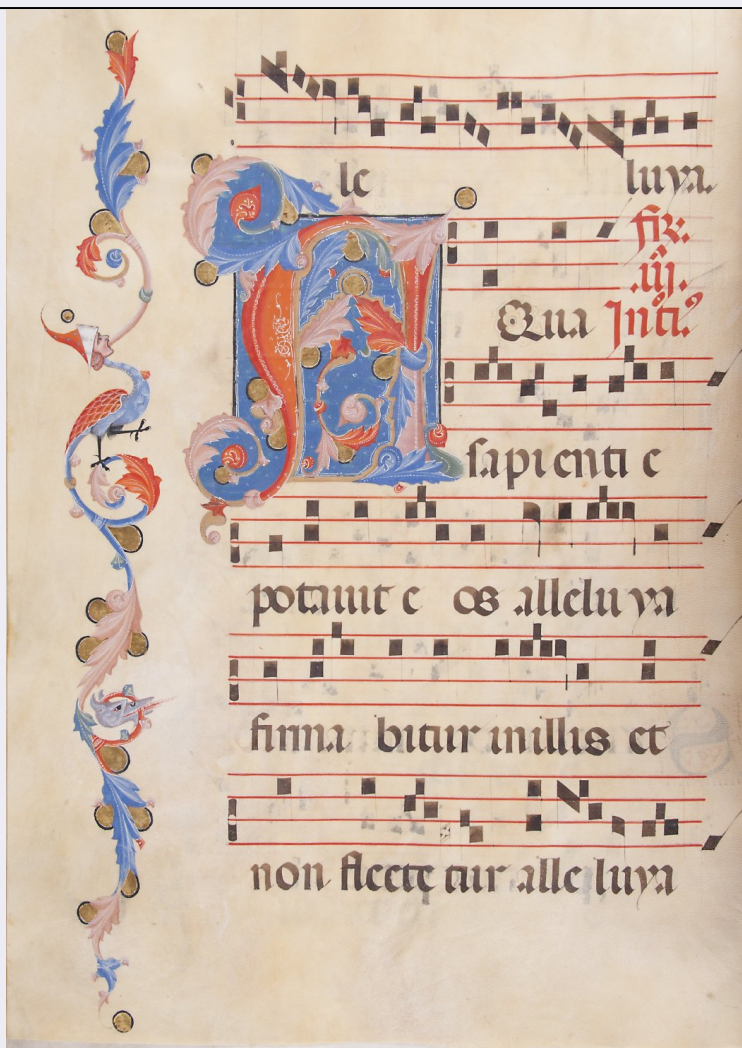 A le luya.
fr.
.iii.
Qua Int.
sapienti e
potauit e os alleluya
firma bitur in illis et
non flecte tur alle luya